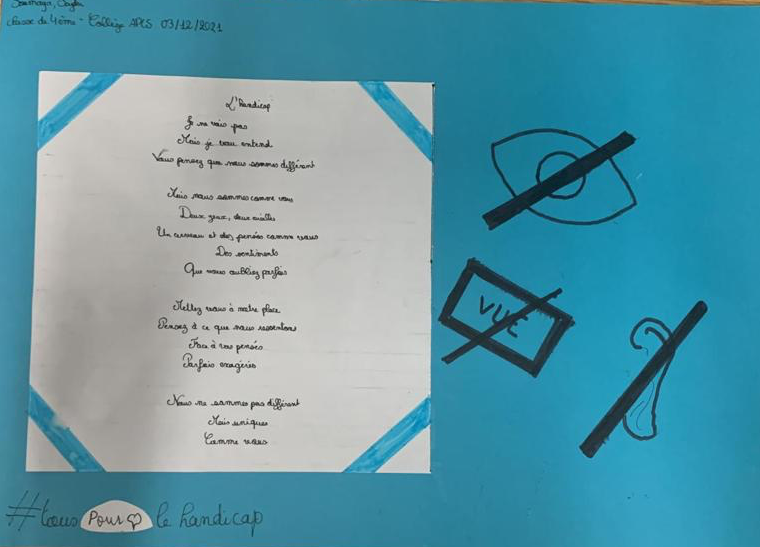 Soumaya, Cayla
classe de 4ème - Collège APCS 03/12/2021
L'handicap
Je ne vois pas
Mais je vous entend
Vous pensez que nous sommes différent
Mais nous sommes comme vous
Deux yeux, deux oreilles
Un cerveau et des pensées comme vous
Des sentiments
Que vous oubliez parfois
Mettez vous à notre place
Pensez à ce que nous ressentons
Face à vos pensés
Parfois exagérés
Nous ne sommes pas différent
Mais uniques
Comme vous
VUE
#tous pour le handicap